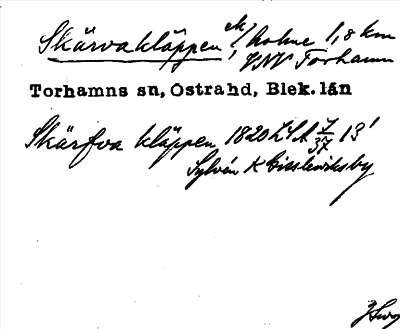 Skärvakläppen ek, holme 1,8 km
VNV Torhamn
Torhamns sn, Östra hd, Blek. län
Skärfva kläppen 1820 LSA 7/37 13'
Sylvén K Gissleviksby